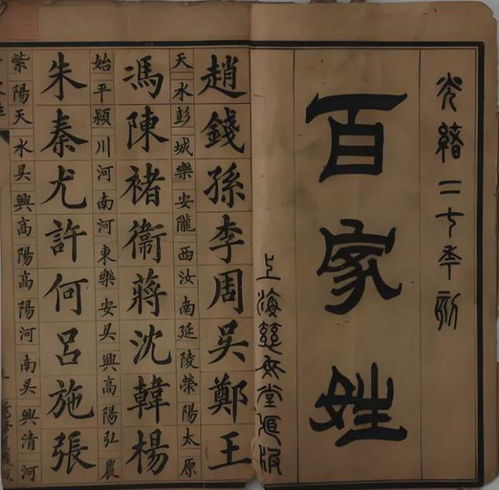 光緒二七年刻
百家姓
上海慈母堂
趙錢孫李周吳鄭王
天水彭城樂安隴西汝南延陵榮陽太原
馮陳褚衛蔣沈韓楊
始平穎川河南河東樂安吳興高陽弘農
朱秦尤許何呂施張
紫陽天水吳興高陽高陽河南吳興清河